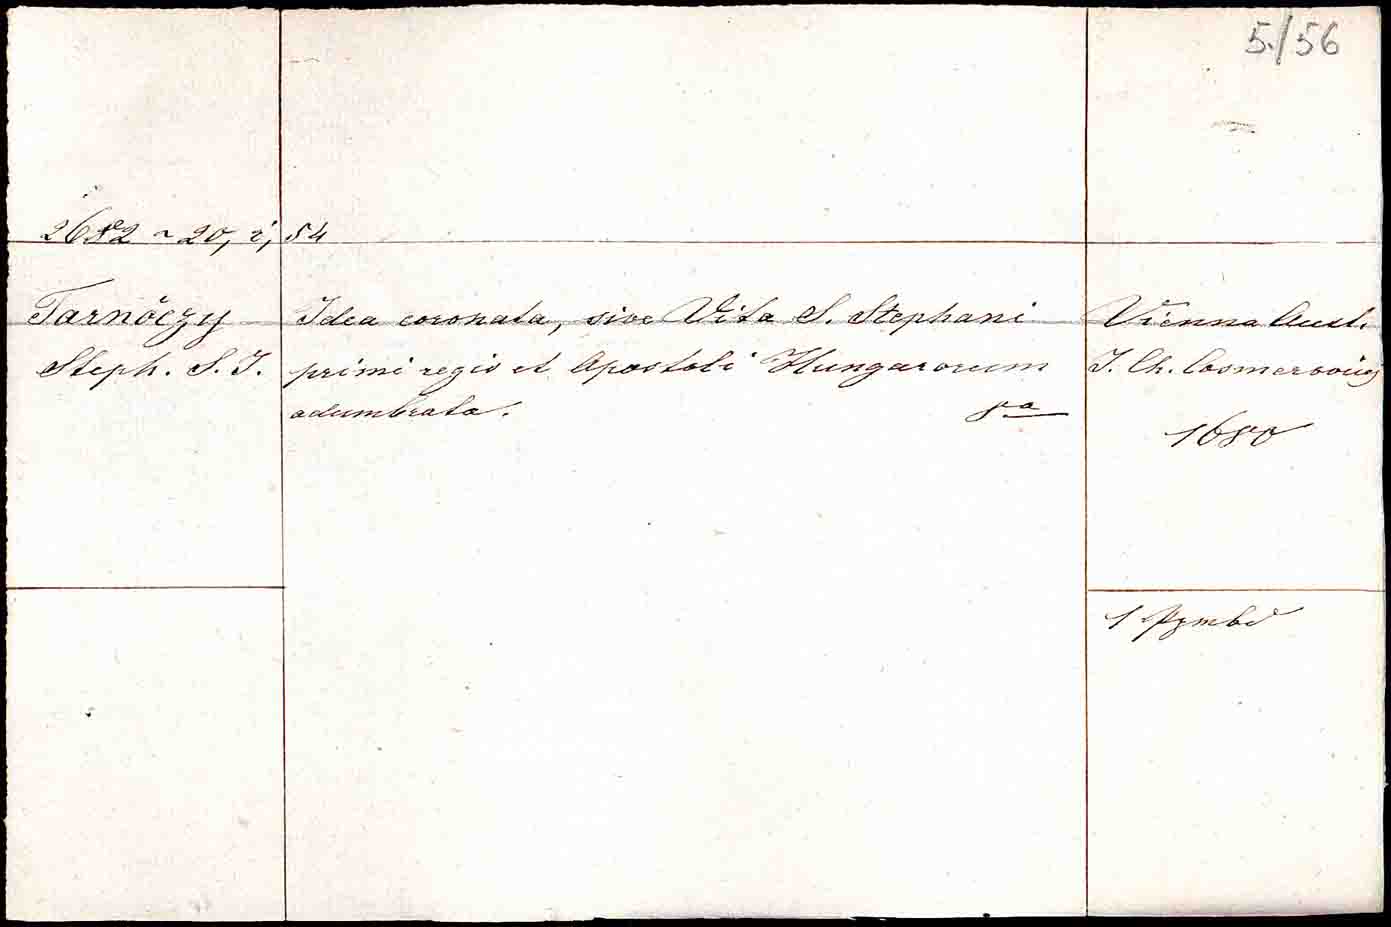 5./56
2682 ~ 20, i, 54
Tarnóczy
Steph. S. J.
Idea coronata, sive Vita S. Stephani
primi regis et Apostoli Hungarorum
adumbrata. 8º
Vienna Aust.
J. Ch. Cosmerovius
1680
1